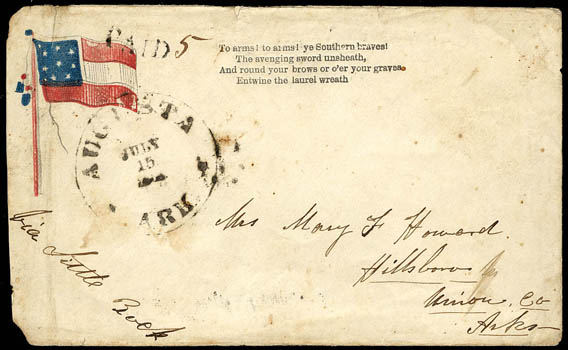 PAID 5
To arms! to arms! ye Southern braves!
The avenging sword unsheath,
And round your brows or o'er your graves
Entwine the laurel wreath
AUGUSTA
JULY
15
ARK
Mrs Mary F Howard.
Hillsboro
Union. Co
Arks
Via Little Rock